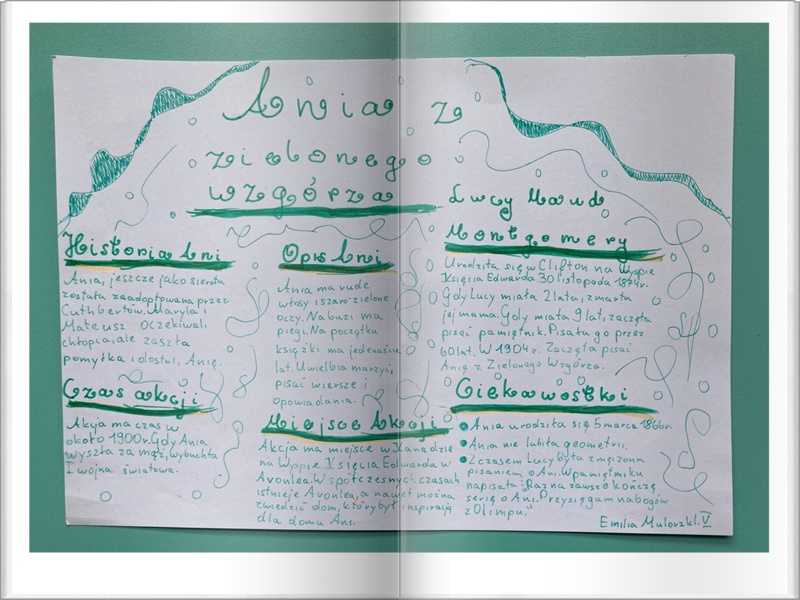 Ania z
zielonego
wzgórza
Historia Ani
Ania, jeszcze jako sierota
została zaadoptowana przez
Cuthbertów. Maryla i
Mateusz oczekiwali
chłopca, ale zaszła
pomyłka i dostali, Anię.
Czas akcji
Akcja ma czas w
około 1900r. Gdy Ania
wyszła za mąż, wybuchła
I wojna światowa.
Opis Ani
Ania ma rude
włosy i szaro zielone
oczy. Na buzi ma
piegi. Na początku
książki ma jedenaście
lat. Uwielbia marzyć,
pisać wiersze i
opowiadania.
Miejsce Akcji
Akcja ma miejsce w Kanadzie
na Wyspie Księcia Edwarda w
Avonlea. W spółczesnych czasach
istnieje Avonlea, a nawet można
zwiedzić dom, który był inspiracją
dla domu Ani.
Lucy Maud
Montgomery
Urodziła się w Clifton na Wyspie
Księcia Edwarda 30 listopada 1874r.
Gdy Lucy miała 2 lata, zmarła
jej mama. Gdy miała 9 lat, zaczęła
pisać pamiętnik. Pisała go przez
60 lat. W 1904r. Zaczęła pisać
Anię z Zielonego Wzgórza.
Ciekawostki
Ania urodziła się 5 marca 1866r.
Ania nie lubiła geometrii.
Z czasem Lucy była zmęczona
pisaniem o Ani. W pamiętniku
napisała "Raz na zawsze kończę
serię o Ani. Przysięgam na bogów
z Olimpu."
Emilia kl. V